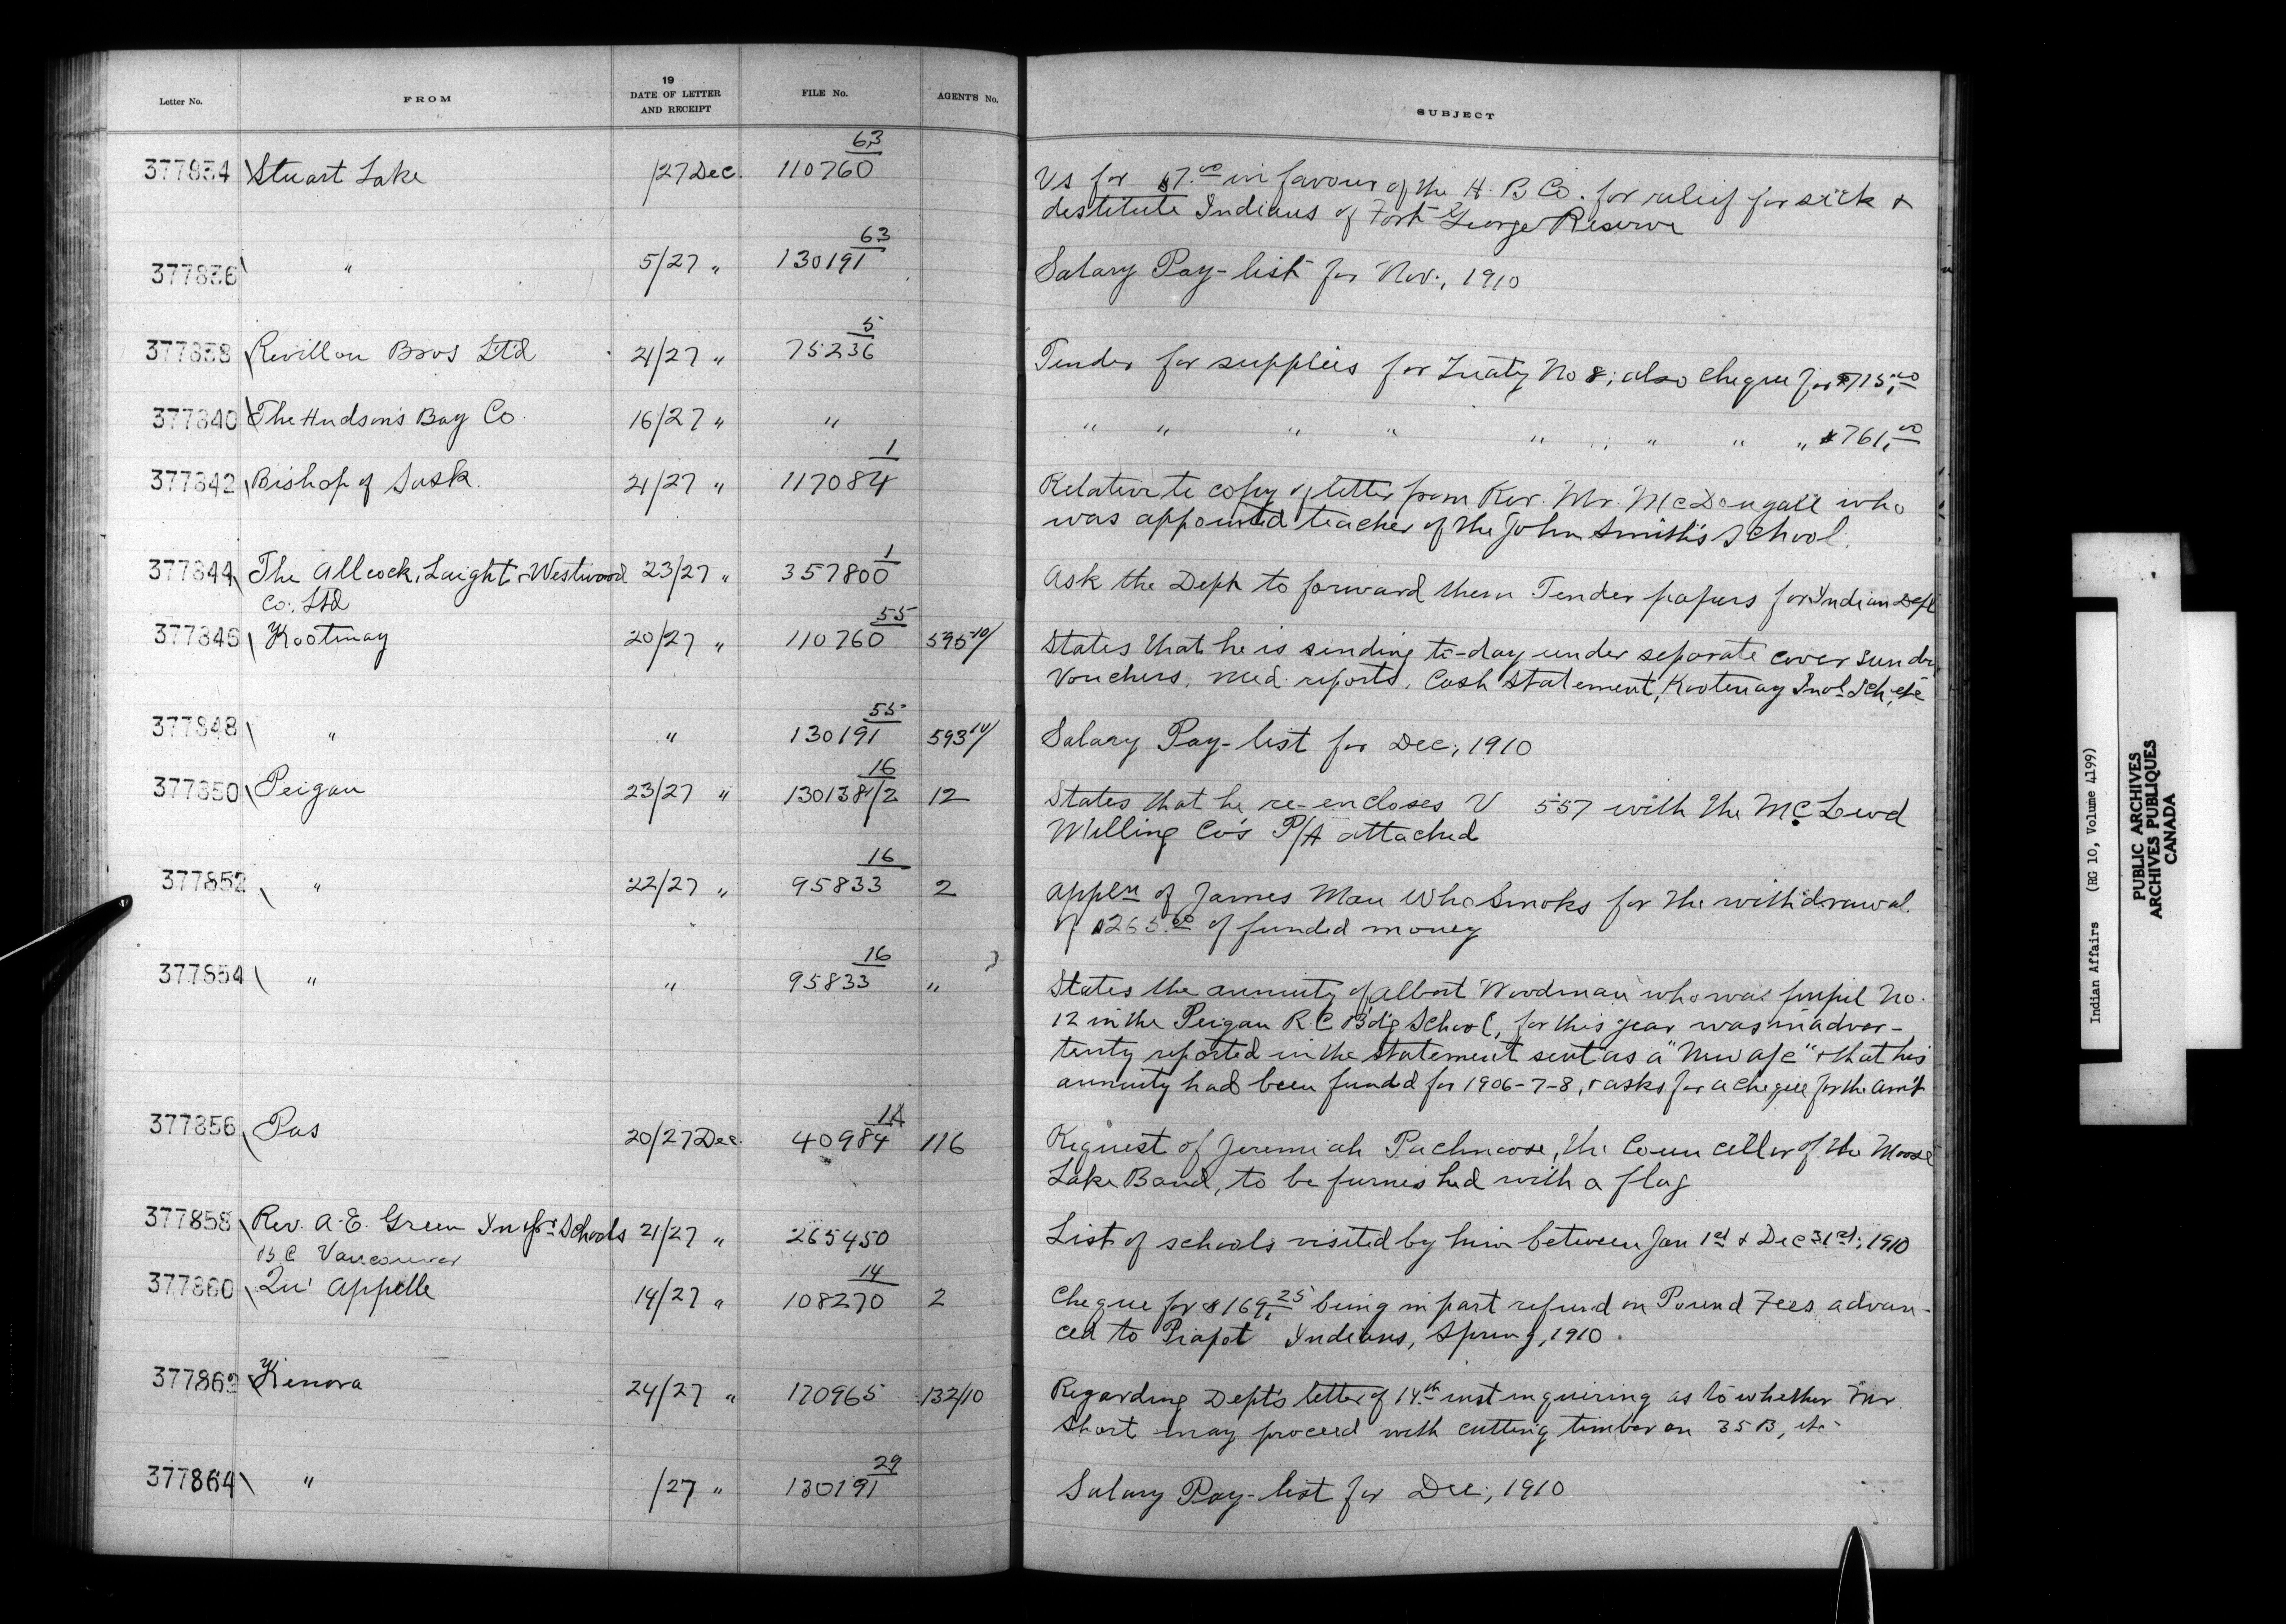 Letter No. FROM 19 DATE OF LETTER AND RECEIPT FILE No. AGENT'S No. SUBJECT
63
377834 Stuart Lake /27 Dec. 110760 Vs for $7.00 in favour of the H. B Co. for relief for sick &
destitute Indians of Fort George Reserve
63
377836 " 5/27 " 130191 Salary Pay-list for Nov., 1910
5
377838 Revillon Bros Ltd 21/27 " 75236 Tender for supplies for Treaty No 8; also cheque for $715.00
377840 The Hudson's Bay Co. 16/27 " " " " " " " " " " $761.00
1
377842 Bishop of Sask. 21/27 " 117084 Relative to copy of letter from Rev. Mr. McDougall who
was appointed teacher of the John Smith's School.
1
377844 The Allcock, Laight & Westwood 23/27 " 357800 Ask the Dept to forward them Tender papers for Indian Dept
Co. Ltd
55
377846 Kootenay 20/27 " 110760 595/10 States that he is sending to-day under separate cover sundry
Vouchers, med. reports, Cash statement, Kootenay Indl Sch, etc
55
377848 " " 130191 593/10 Salary Pay-list for Dec., 1910
16
377850 Peigan 23/27 " 130138/2 12 States that he re-encloses V 557 with the McLeod
Milling Co's P/A attached
16
377852 " 22/27 " 95833 2 Appln of James Man Who Smoks for the withdrawal
of $265.00 of funded money
16
377854 " " 95833 " States the annuity of Albert Woodman who was pupil No.
12 in the Peigan R.C. Bd'g School, for this year was inadver-
tenty reported in the statement sent as a "New afc" & that his
annuity had been funded for 1906-7-8, & asks for a cheque for the am't
14
377856 Pas 20/27 Dec. 40984 116 Request of Jeremiah the Councellor of the Moose
Lake Band, to be furnished with a flag
377858 Rev. A. E. Green Inspr Schools 21/27 " 265450 List of schools visited by him between Jan 1st & Dec 31st, 1910
B C Vancouver
14
377860 Qu' Appelle 14/27 " 108270 2 Cheque for $169.25 being in part refund on Pound Fees advan-
ced to Piapot Indians, Spring, 1910.
377862 Kenora 24/27 " 170965 132/10 Regarding Dept's letter of 14th inst inquiring as to whether Mr.
Short may proceed with cutting timber on 35B, etc
29
377864 " /27 " 130191 Salary Pay-list for Dec., 1910
Indian Affairs (RG 10, Volume 4199)
PUBLIC ARCHIVES
ARCHIVES PUBLIQUES
CANADA